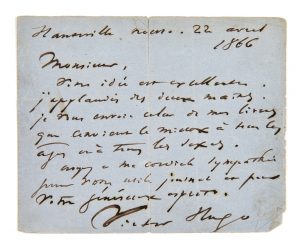 Hauteville house. 22 avril
1866
Monsieur,
Votre idée est excellente.
j'applaudis des deux mains.
je vous envoie celui de mes livres
qui convient le mieux à tous les
âges et à tous les sexes.
ma cordiale sympathie
pour votre utile journal et pour
votre généreux
Victor Hugo